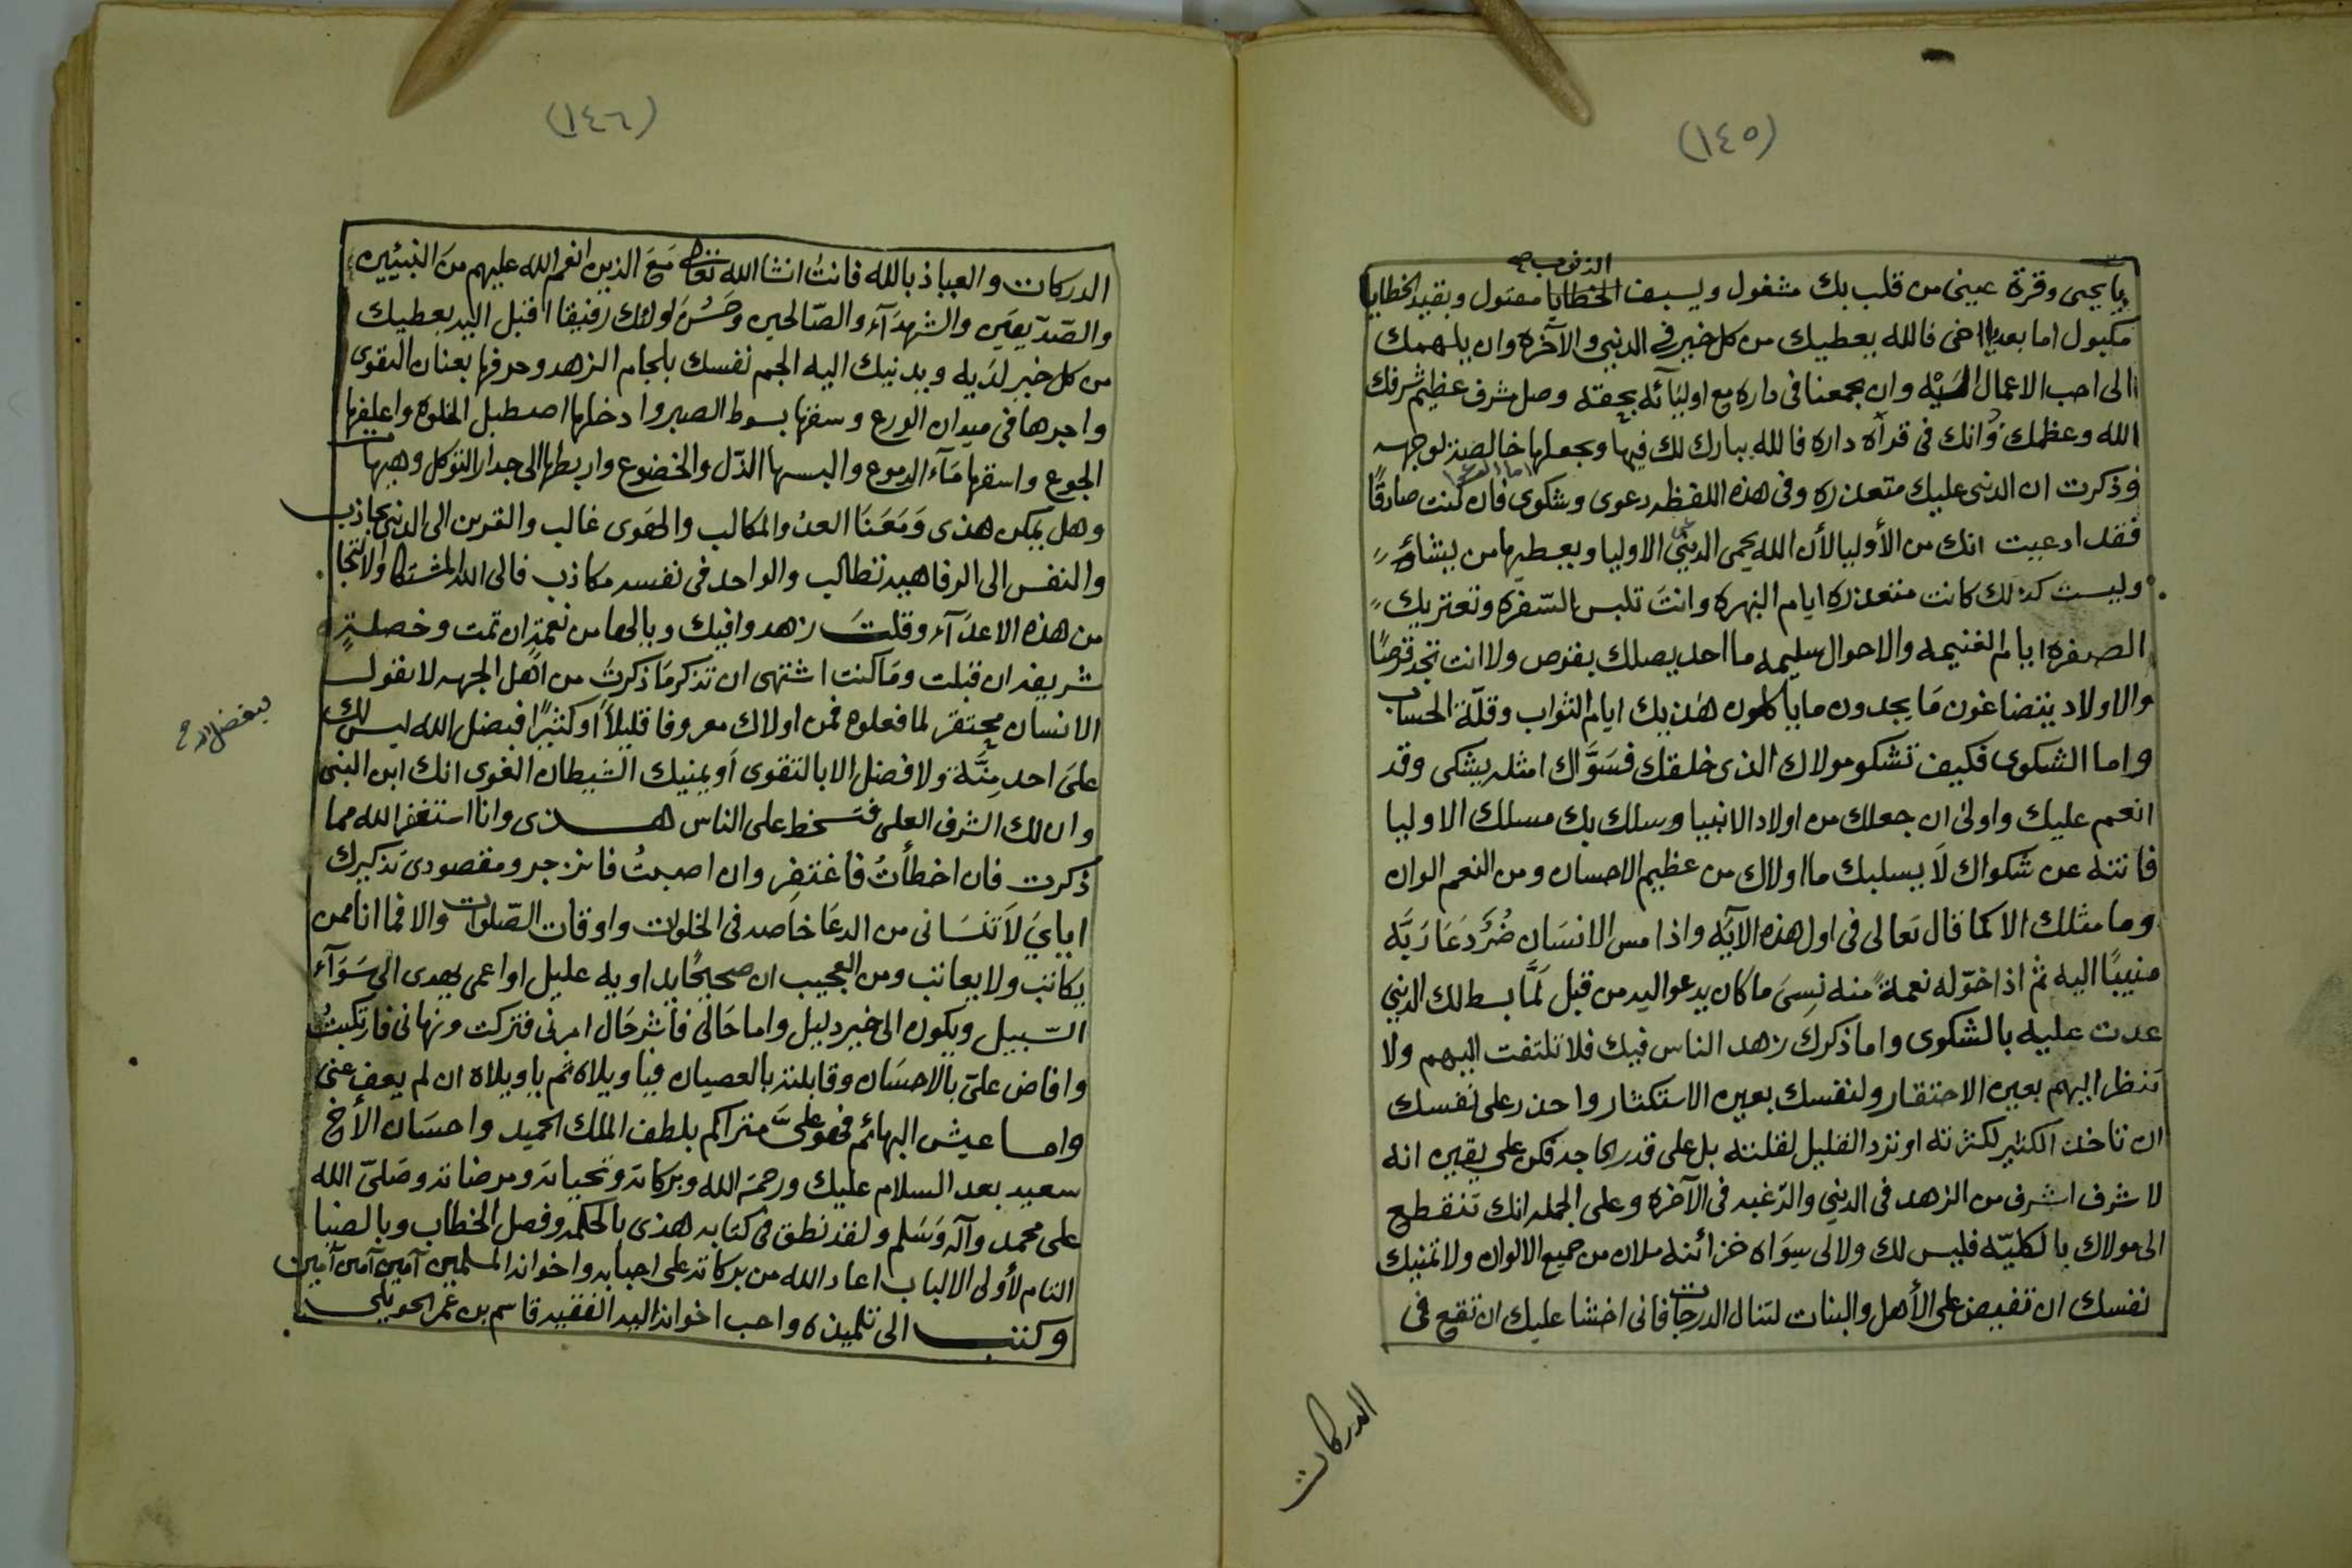 (١٤٥)
الذنوب صح
يا يحيى وقرة عينى من قلب بك مشغول وبسيف الخطايا مقتول وبقيد الخطايا
مكبول اما بعد يا اخى فالله يعطيك من كل خير في الدنيى والآخرة وان يلهمك
الى احب الاعمال اليه وان يجمعنا فى داره مع اوليآئه بحقه وصل شرف عظيم شرفك
الله وعظمك وانك فى قرآة داره فالله يبارك لك فيها ويجعلها خالصة لوجهه
اما الدعوى
وذكرت ان الدنيى عليك متعذره وفى هذه اللفظه دعوى وشكوى فان كنت صادقًا
فقد ادعيت انك من الأوليا لأن الله يحمى الدينى الاوليا ويعطيها من يشاء
وليست كذلك كانت متعذره ايام النهره وانت تلبس السفره وتعتريك
الصفره ايام الغنيمه والاحوال سليمه ما احد يصلك بقرص ولا انت تجد قرصًا
والاولاد يتضاغون مَا يجدون ما ياكلون هٰذيك ايام الثواب وقلّة الحساب
واما الشكوى فكيف تشكو مولاك الذى خلقك فسَوَّاك امثله يشكى وقد
انعم عليك واولىٰ ان جعلك من اولاد الانبيا وسلك بك مسلك الاوليا
فانته عن شكواك لَا يسلبك ما اولاك من عظيم الاحسان ومن النعم الوان
وما مثلك الا كما قال تعالى فى اول هذه الآيه واذا مس الانسَان ضُرٌ دَعَا رَبَّه
منيبًا اليه ثم اذا خوّله نعمةً منه نسِىَ ما كان يدعو اليه من قبل لَمَّا بسط لك الدنيى
عدت عليه بالشكوى واما ذكرك زهد الناس فيك فلا تلتفت اليهم ولا
تنظر اليهم بعين الاحتقار ولنفسك بعين الاستكثار واحذر على نفسك
ان تاخذ الكثير لكثرته او ترد القليل لقلته بل على قدر الحاجه فكن على يقين انه
لا شرف اشرف من الزهد فى الدنيى والرغبه فى الآخره وعلى الجمله انك تنقطع
الى مولاك بالكليّه فليس لك ولا لى سِوَاه خزائنه ملان من جميع الالوان ولا تمنيك
نفسك ان تفيض على الأهل والبنات لتنال الدرجات فانى اخشا عليك ان تقع فى
الدركات
(١٤٦)
الدركات والعياذ بالله فانتُ انشا الله تعالى مَعَ الذين انعم الله عليهم من النبيّين
والصّدّيقين والشهدَآء والصّالحين وحَسُنَ اولئك رفيقا اقبل اليه يعطيك
من كل خير لدَيه ويدنيك اليه الجم نفسك بلجام الزهد وحرفها بعنان التقوى
واجرها فى ميدان الورع وسقها بسوط الصبر وادخلها اصطبل الخلوه واعلفها
الجوع واسقها مَآء الدموع والبسها الذّل والخضوع واربطها الى جدار التوكل وهيهات
وهل يمكن هذى وَمَعَنَا العدوُ المكالب والهوى غالب والقرين الى الدنيى جاذب
والنفس الى الرفاهيه تطالب والواحد فى نفسه مكاذب فالى الله المشتكا والالتجا
من هذه الاعدَآء وقلت زهدوا فيك ويا لها من نعمةٍ ان تمت وخصلةٍ
شريفه ان قبلت ومَا كنت اشتهى ان تذكر مَا ذكرتَ من اهل الجهه لا يقول
الانسان محتقر لما فعلوه فمن اولاك معروفا قليلاً أو كثيرًا فبفضل الله ليس لك
بفضل الله صح
علىَ احد مِنَّة ولا فضل الا بالتقوى أو يمنيك الشيطان الغوى انك ابن النبى
وان لك الشرف العلى فتسخط على الناس هذى وانا استغفر الله مما
ذكرت فان اخطأتُ فاغتفر وان اصبتُ فانزجر ومقصودى تذكيرك
اياىَ لَا تنسَانى من الدعَا خَاصه فى الخلوات واوقات الصّلوات والا فما انا ممن
يكاتب ولا يعاتب ومن العجيب ان صحيحًا يداويه عليل او اعمى يهدى الى سَوَآء
السّبيل ويكون الى خير دليل واما حَالى فاشر حَال امرنى فتركت ونهانى فارتكبتُ
وافاض علىّ بالاحسَان وقابلته بالعصيان فيا ويلاه ثم يا ويلاه ان لم يعف عنى
واما عيش البهائم فهو علىَّ متراكم بلطف الملك الحميد واحسَان الأخ
سعيد بعد السلام عليك ورحمة الله وبركاته وتحياته ومرضاته وصَلىّ الله
على محمد وآله وَسَلم ولقد نطق فى كتابه هذى بالحكمه وفصل الخطاب وبالضيا
التام لأولى الالباب اعاد الله من بركاته على احبابه واخوانه المسلمين آمين آمين آمين
وكتب الى تلميذه واحب اخوانه اليه الفقيه قاسم بن عمر الحويلى